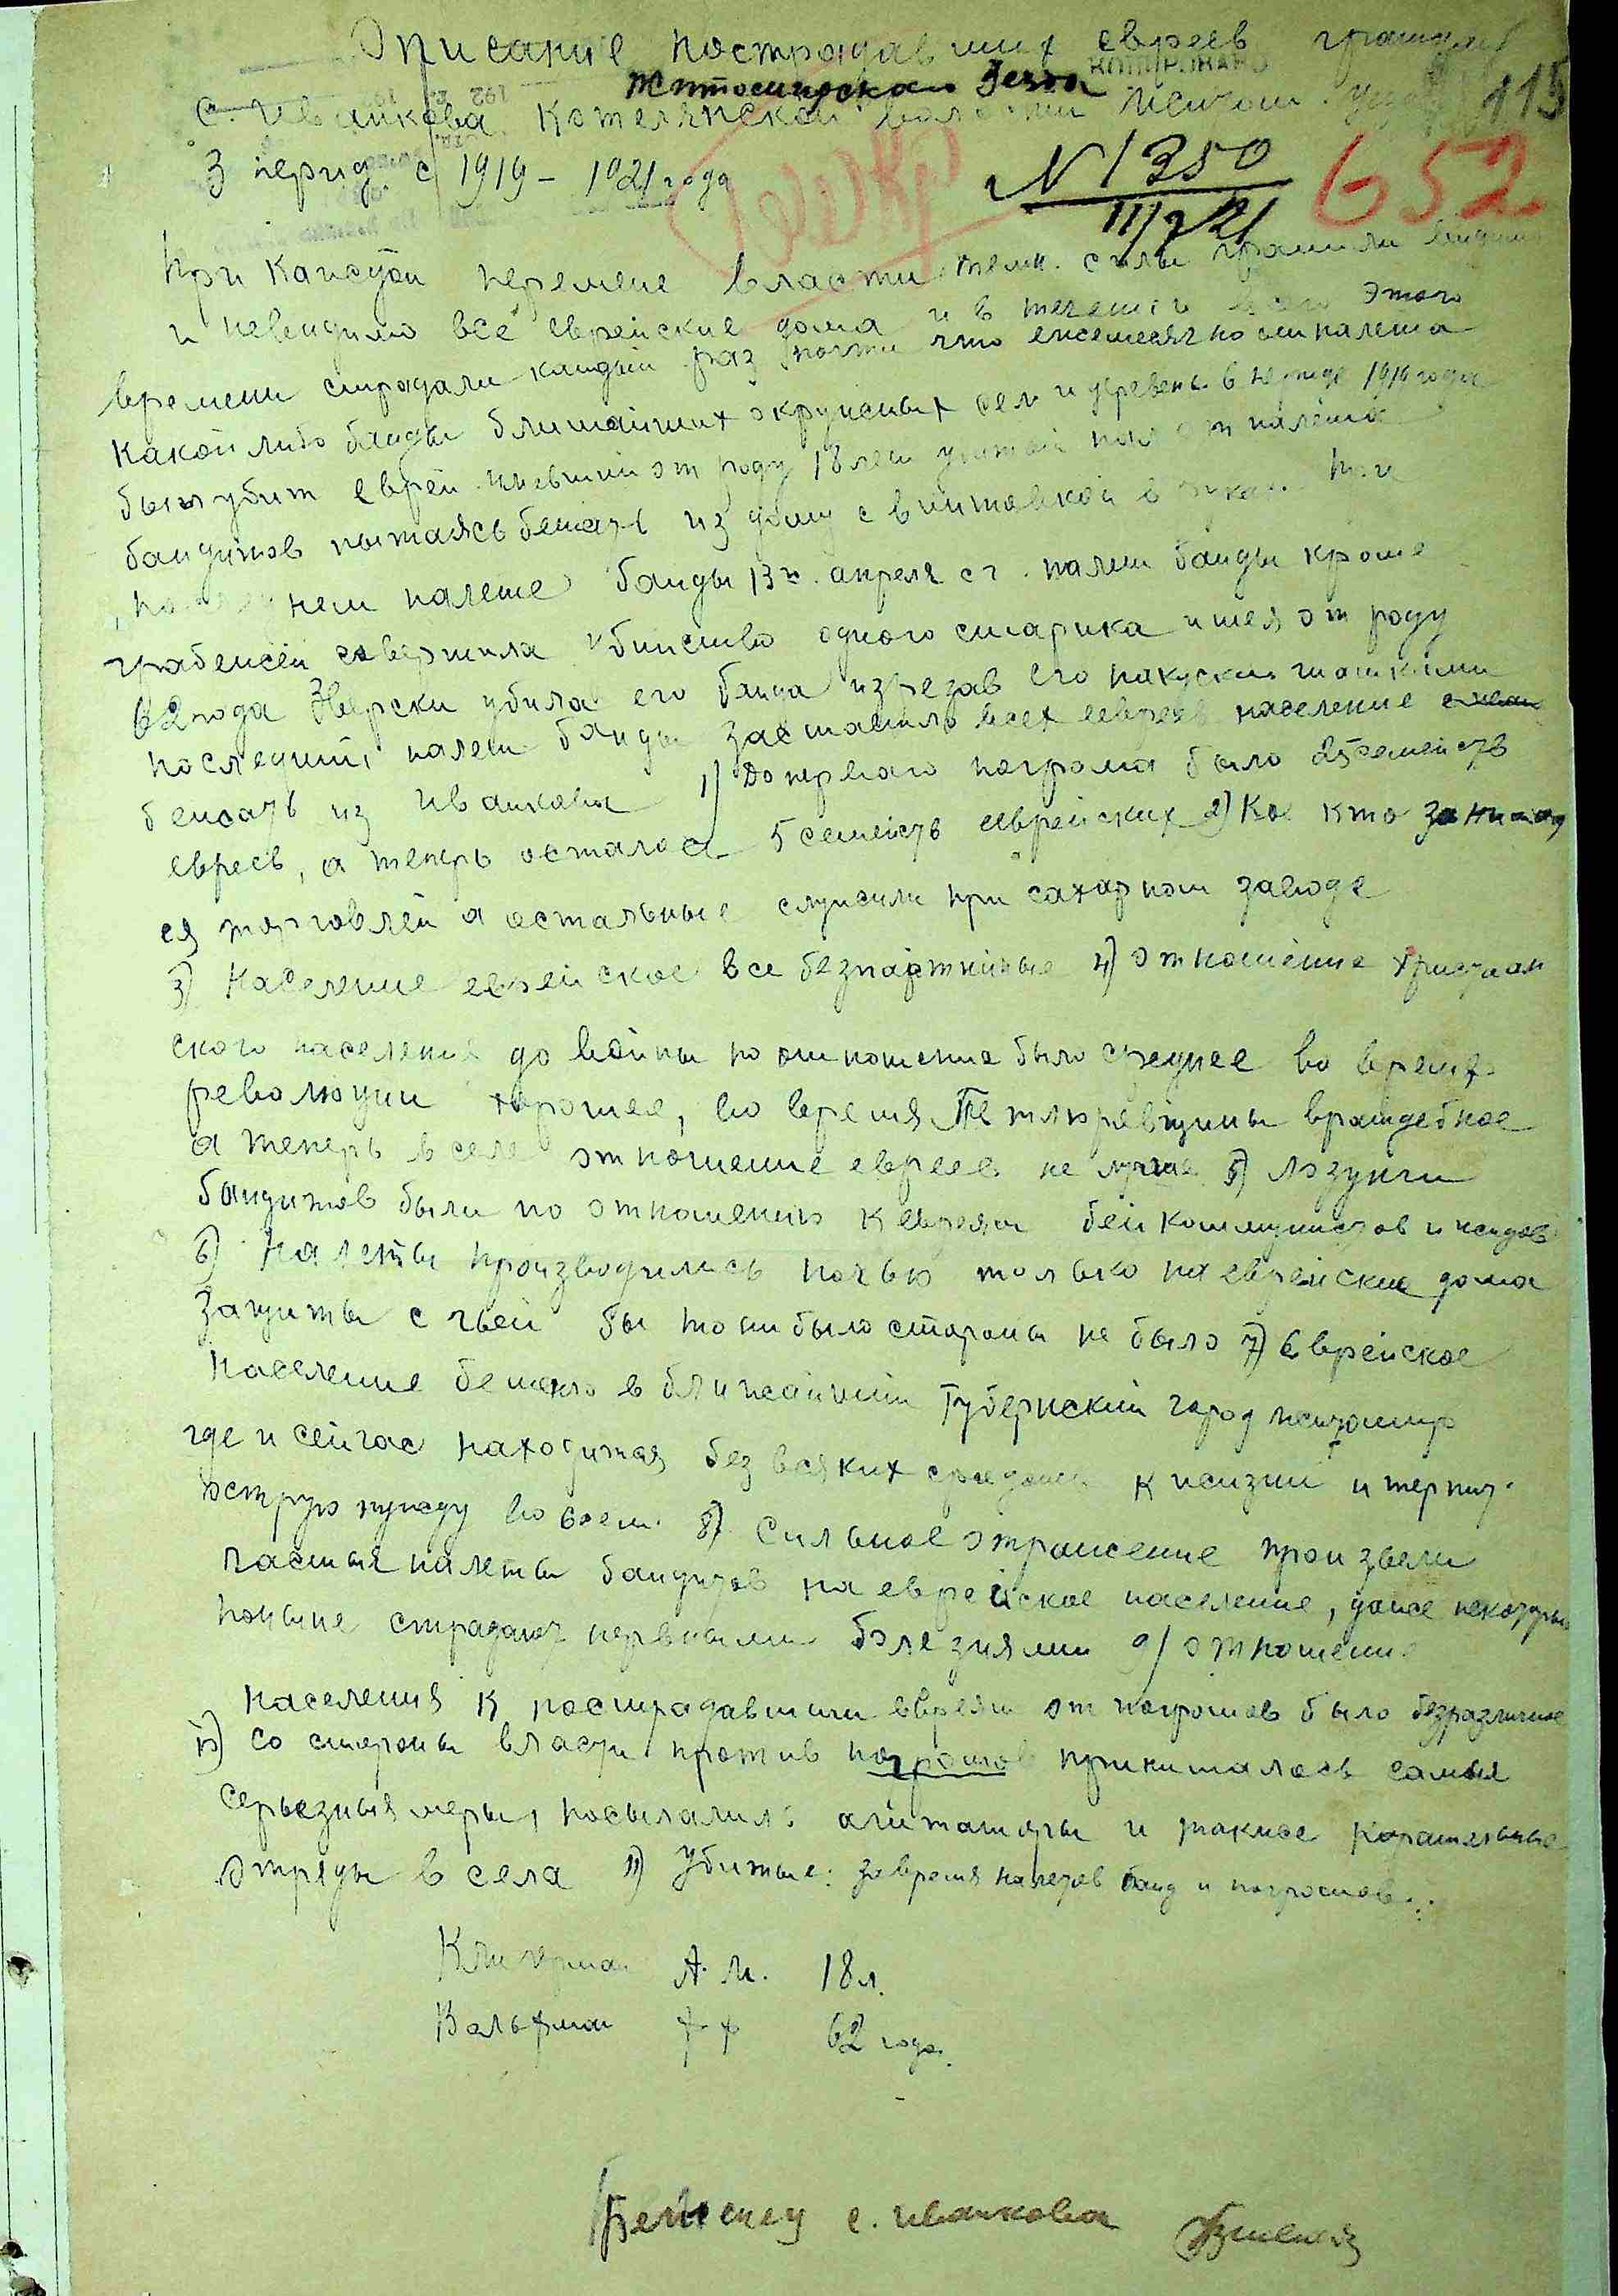 Описание пострадавших евреев граждан
КОПИРОВАНО
Житомирского Уезда
с. Иванкова Котелянской волости Житом. уезда 115
З период с 1919 – 1921 года
N 1350
III/
652
При каждой перемене власти темн. силы громили видимо
и невидимо все еврейские дома и в течении всего этого
времени страдали каждый раз почти что ежемесячно от налета
какой либо банды ближайших окружных сел и деревень в периоде 1919 года
был убит еврей имевший от роду 18 лет убитый при налёте
бандитов пытаясь бежать из дому с винтовкой в руках При
последнем налете банды 13го апреля с г. налет банды кроме
грабежей совершила убийство одного старика имея от роду
62 года Зверски убила его банда изрезав его на куски шашками
последний налет банды заставило всех евреев население
бежать из Иванкова 1) До первого погрома было 25 семейств
евреев, а теперь осталось 5 семейств еврейских 2) Кое кто занимал
ся торговлей а остальные служили при сахарном заводе
3) Население еврейское все безпартийные 4) отношение христиан
ского население до войны по отношение было среднее во время
революции хорошее, во время Петлюревщины враждебное
а теперь в селе отношение евреев не лучше 5) лозунги
бандитов были по отношению к евреям бей коммунистов и жидов
6) Налеты производились ночью только на еврейские дома
Защиты с чьей бы то ни было стороны не было 7) Еврейское
население бежало в ближайший Губернский город Житомир
где и сейчас находится без всяких средств к жизни и терпит
острую нужду во всем. 8) Сильное отражение произвели
частыя налеты бандитов на еврейское население, даже некоторые
поныне страдают нервными болезнями 9) отношение
населения к пострадавшим евреям от погромов было безразличное
10) Со стороны власти против погромов принималось самыя
серьезныя меры, посылались агитаторы и также карательные
отряды в села 11) Убитые: за время налетов банд и погромов:
А. М. 18 л.
Вольфман 62 года.
Беженец с. Иванкова